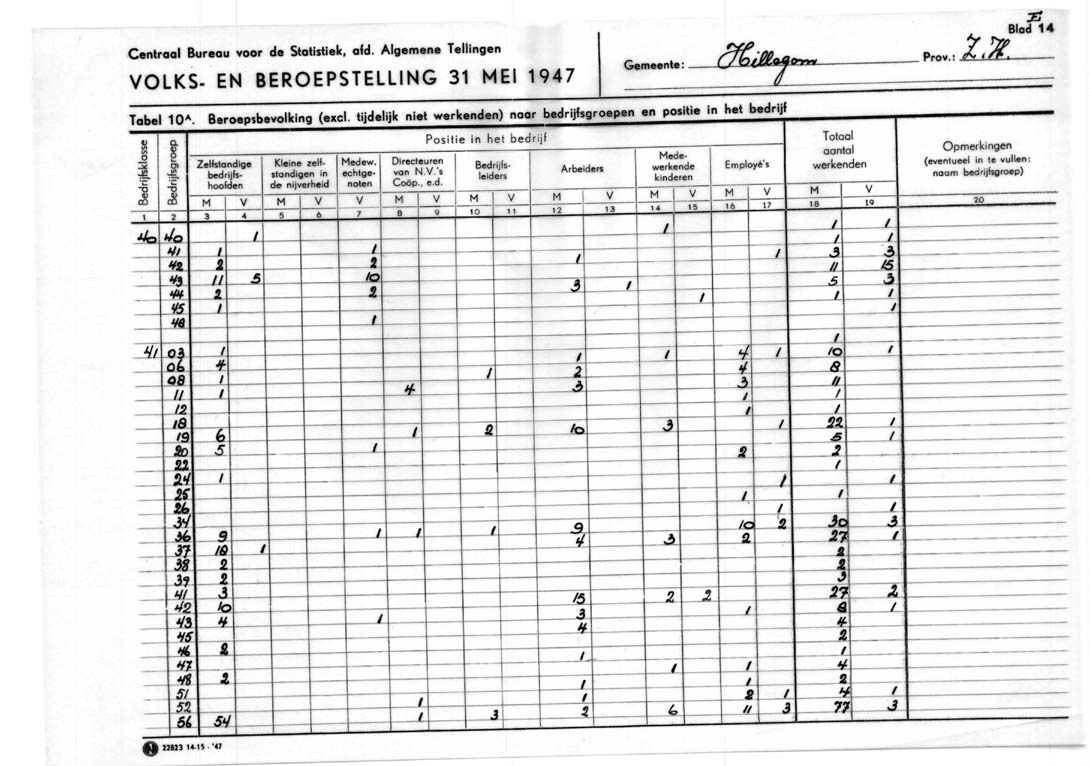 E
Blad 14
Centraal Bureau voor de Statistiek, afd. Algemene Tellingen
VOLKS- EN BEROEPSTELLING 31 MEI 1947
Gemeente: Hillegom Prov.: Z.H.
Tabel 10A. Beroepsbevolking (excl. tijdelijk niet werkenden) naar bedrijfsgroepen en positie in het bedrijf
Bedrijfsklasse Bedrijfsgroep Positie in het bedrijf Totaal aantal werkenden Opmerkingen (eventueel in te vullen: naam bedrijfsgroep)
Zelfstandige bedrijfs-hoofden Kleine zelf-standigen in de nijverheid Medew. echtge-noten Directeuren van N.V.'s Coöp., e.d. Bedrijfs-leiders Arbeiders Mede-werkende kinderen Employé's
M V M V V M V M V M V M V M V M V
1 2 3 4 5 6 7 8 9 10 11 12 13 14 15 16 17 18 19 20
40 40 1 1 1 1
41 1 1 1 1
42 2 2 1 1 3 3
43 11 5 10 11 15
44 2 2 3 1 5 3
45 1 1 1 1
48 1 1
41 03 1 1
06 4 1 1 4 1 10 1
08 1 1 2 4 8
11 1 4 3 3 11
12 1 1
18 1 1
19 6 1 2 10 3 1 22 1
20 5 1 5 1
22 2 2
24 1 1
25 1 1
26 1 1
34 1 1
36 9 1 1 1 9 10 2 30 3
37 18 1 4 3 2 27 1
38 2 2
39 2 2
41 3 3
42 10 15 2 2 27 2
43 4 1 3 1 8 1
45 4 4
46 2 2
47 1 1
48 2 1 1 4
51 1 1 2
52 1 1 2 1 4 1
56 54 1 3 2 6 11 3 77 3
N 22823 14-15 - '47